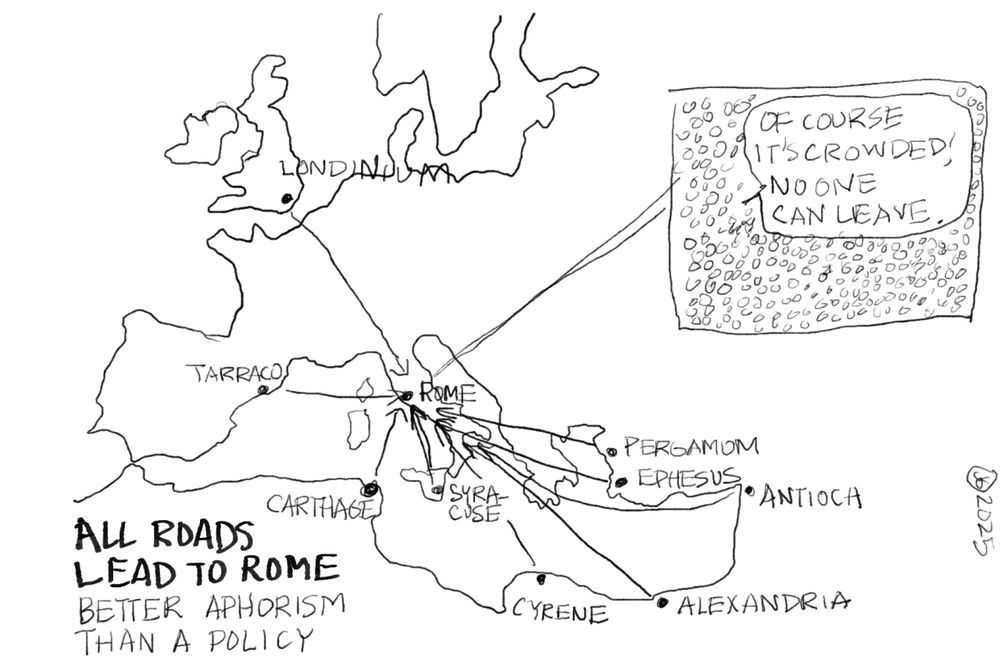 LONDINIUM
OF COURSE
IT'S CROWDED!
NO ONE
CAN LEAVE.
TARRACO
ROME
PERGAMUM
EPHESUS
ANTIOCH
CARTHAGE
SYRA-
CUSE
CYRENE
ALEXANDRIA
ALL ROADS
LEAD TO ROME
BETTER APHORISM
THAN A POLICY
2025